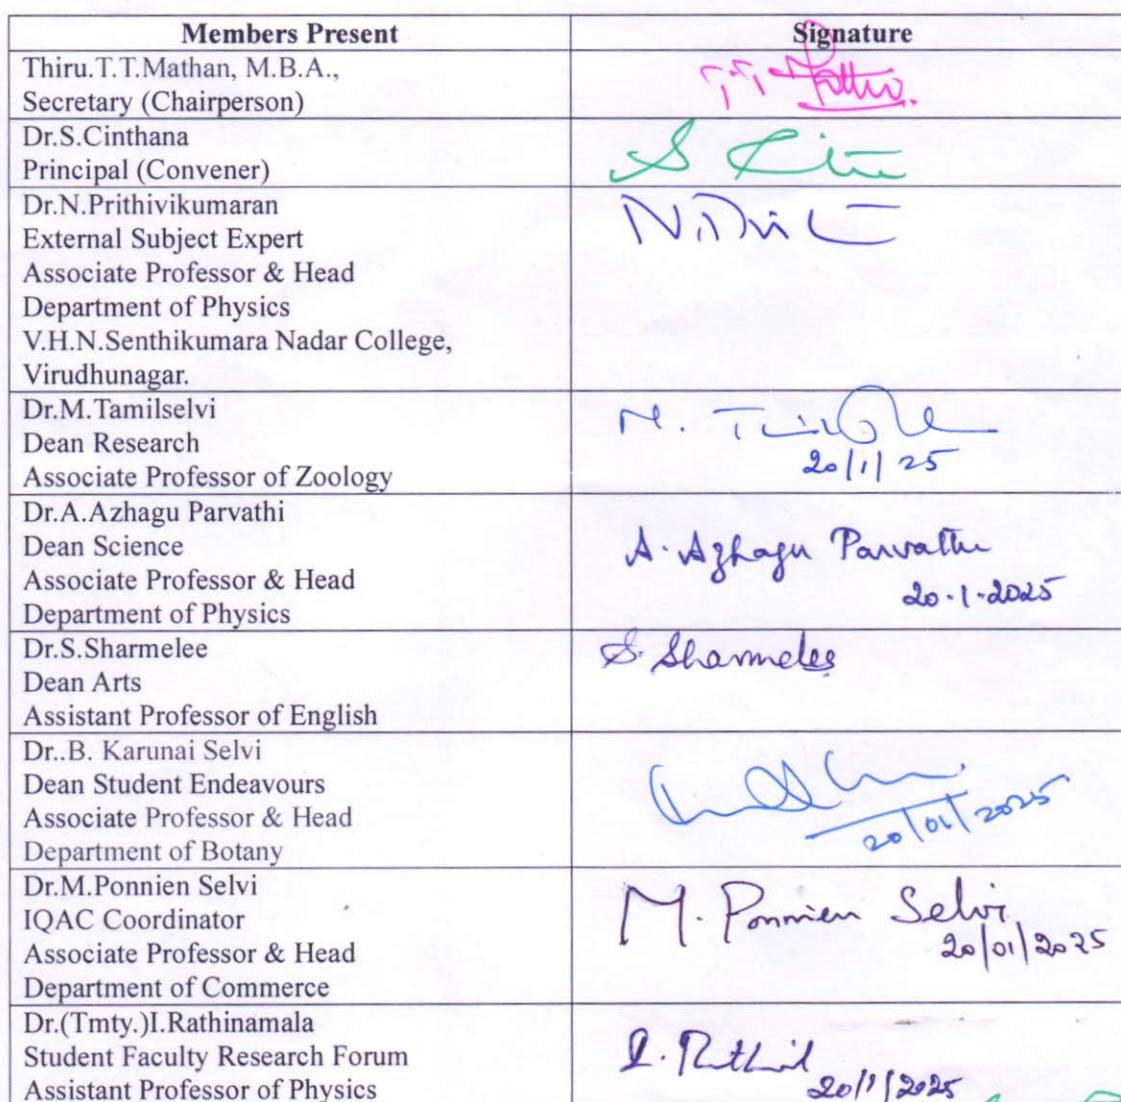 Members Present
Signature
Thiru.T.T.Mathan, M.B.A.,
Secretary (Chairperson)
Dr.S.Cinthana
Principal (Convener)
Dr.N.Prithivikumaran
External Subject Expert
Associate Professor & Head
Department of Physics
V.H.N.Senthikumara Nadar College,
Virudhunagar.
Dr.M.Tamilselvi
Dean Research
Associate Professor of Zoology
20/1/25
Dr.A.Azhagu Parvathi
Dean Science
Associate Professor & Head
Department of Physics
A. Azhagu Parvathi
20.1.2025
Dr.S.Sharmelee
Dean Arts
Assistant Professor of English
S. Sharmelee
Dr..B. Karunai Selvi
Dean Student Endeavours
Associate Professor & Head
Department of Botany
20/01/2025
Dr.M.Ponnien Selvi
IQAC Coordinator
Associate Professor & Head
Department of Commerce
M. Ponnien Selvi
20/01/2025
Dr.(Tmty.)I.Rathinamala
Student Faculty Research Forum
Assistant Professor of Physics
20/1/2025